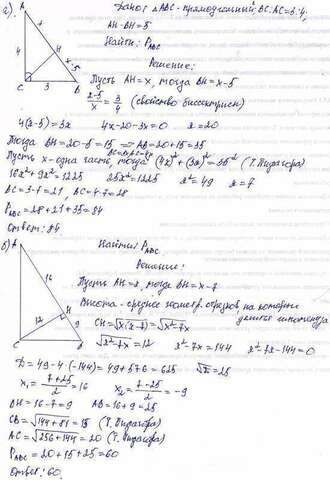 а) Дано: △ABC - прямоугольный; BC:AC=3:4;
AH-BH=5
Найти: P_ABC
Решение:
Пусть AH=x, тогда BH=x-5
(x-5)/x = 3/4 (свойство биссектрисы)
4(x-5)=3x 4x-20-3x=0 x=20
Тогда BH=20-5=15 ⇒ AB=20+15=35
BC=3x, AC=4x
Пусть x-одна часть, тогда (4x)²+(3x)²=35² (Т. Пифагора)
16x²+9x²=1225 25x²=1225 x²=49 x=7
BC=3·7=21, AC=4·7=28
P_ABC=28+21+35=84
Ответ: 84
A
x
4
H
x-5
C
3
B
б) Найти: P_ABC
Решение:
Пусть AH=x, тогда BH=x-7
Высота - среднее геометр. отрезков на которые
делит гипотенуза
CH=√x(x-7)=√x²-7x
√x²-7x=12 x²-7x=144 x²-7x-144=0
D=49-4·(-144)=49+576=625 √D=25
x₁=(7+25)/2=16 x₂=(7-25)/2=-9
BH=16-7=9 AB=16+9=25
CB=√144+81=15 (Т. Пифагора)
AC=√256+144=20 (Т. Пифагора)
P_ABC=20+15+25=60
Ответ: 60.
A
16
H
12
9
C
B